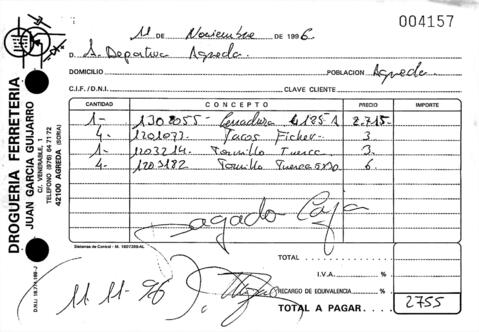 004157
11 DE Noviembre DE 1996.
D. S. Deportiva Agreda.
DOMICILIO POBLACION Agreda.
C.I.F./D.N.I. CLAVE CLIENTE
CANTIDAD CONCEPTO PRECIO IMPORTE
1- Cerradura 2.715-
4- 1201077- Tacos Ficher- 3
1- 1203214- Tornillo Tuerca 3-
4- 1203182 Tornillo Tuerca 5x30 6.
Pagado Caja
Sistemas de Control - M.
TOTAL
I.V.A. %
RECARGO DE EQUIVALENCIA %
TOTAL A PAGAR 2755
11-11-96
DROGUERIA FERRETERIA
JUAN GARCIA GUIJARRO
C/. VENERABLE, 1
TELEFONO (976) 64 71 72
42100 AGREDA (SORIA)